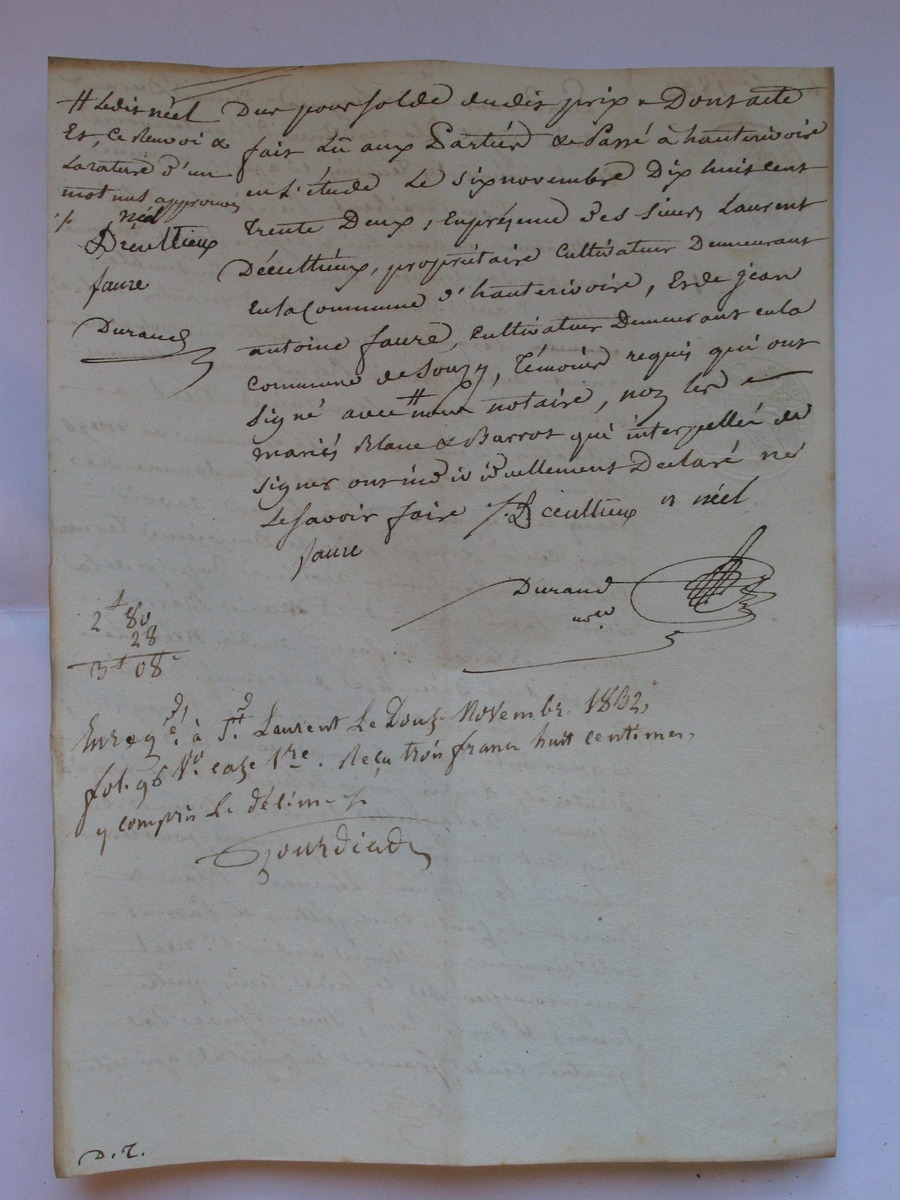 # Ledit néel
Et, Ce Renvoi &
La rature d'un
mot nul approuvés
néel
Décultieux
faure
Durand
Du pour solde dudit prix. Dont acte
fait Lu aux Parties & Passé à hauterivoire
en L'étude Le six novembre Dix huit cent
Trente Deux, En présence des sieurs Laurent
Décultieux, propriétaire Cultivateur Demeurant
en la Commune d'hauterivoire, Et de jean
antoine faure, Cultivateur Demeurant en la
Commune de Souzy, Témoins requis qui ont
signé avec # nous notaire, non les
mariés Blanc & Barrot qui interpellés de
signer ont individuellement Declaré ne
Le savoir faire Décultieux néel
faure
Durand
nore
2f 80
28
3f 08c
Enregé. à St. Laurent Le Douze Novembre 1832,
fol. 96 Vo. case 1re. Reçu trois francs huit centimes,
y compris Le décime
D. T.